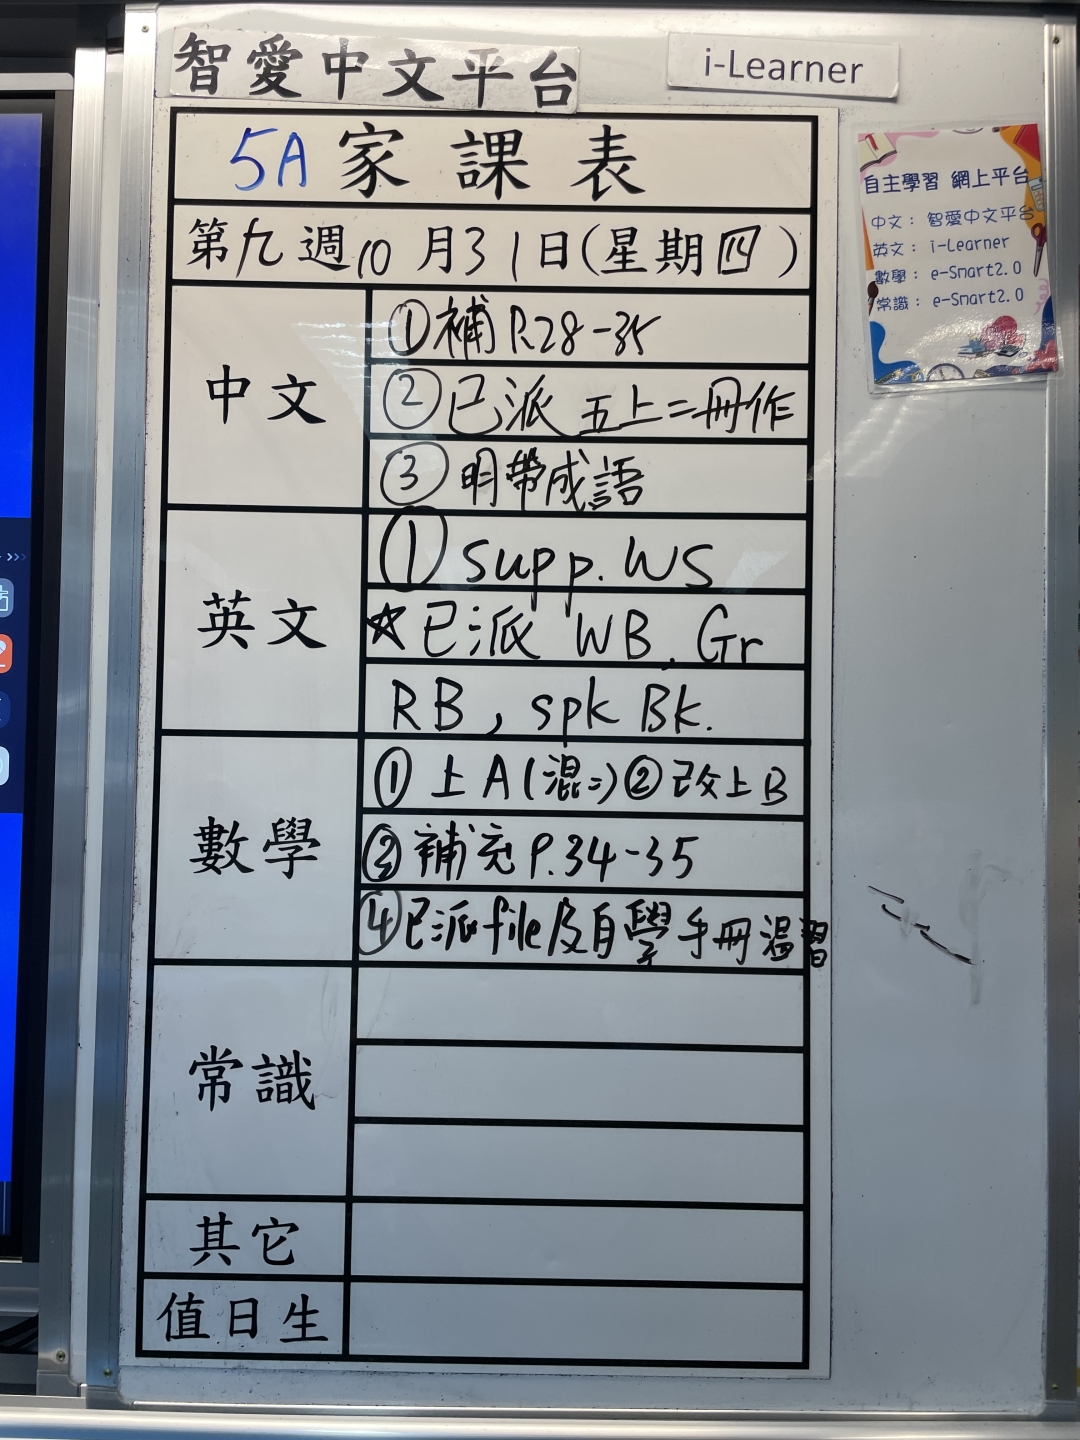 智愛中文平台
i-Learner
5A 家課表
第九週10月31日(星期四)
中文
①補 P.28-35
②已派 五上二冊作
③明帶成語
英文
① supp. WS
☆已派 WB, Gr
RB, spk Bk.
數學
①上A(混二)②改上B
③補充 P.34-35
④已派file及自學手冊溫習
常識
其它
值日生
自主學習 網上平台
中文：智愛中文平台
英文：i-Learner
數學：e-Smart2.0
常識：e-Smart2.0